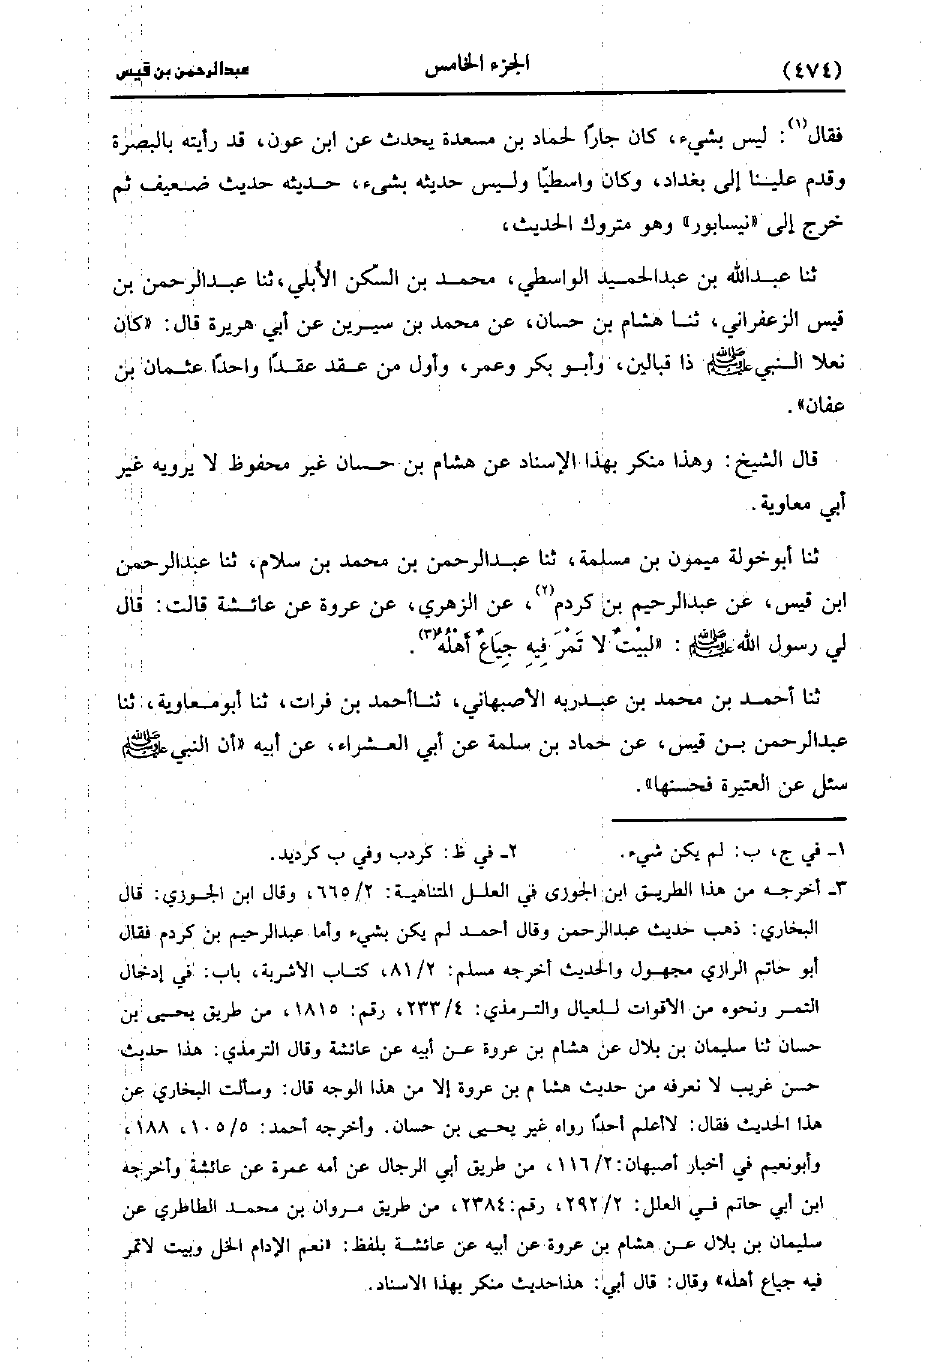 (٤٧٤) الجزء الخامس عبدالرحمن بن قيس
فقال(١): ليس بشيء، كان جارًا لحماد بن مسعدة يحدث عن ابن عون، قد رأيته بالبصرة
وقدم علينا إلى بغداد، وكان واسطيًا وليس حديثه بشيء، حديثه حديث ضعيف ثم
خرج إلى «نيسابور» وهو متروك الحديث،
ثنا عبدالله بن عبدالحميد الواسطي، محمد بن السكن الأبلي، ثنا عبدالرحمن بن
قيس الزعفراني، ثنا هشام بن حسان، عن محمد بن سيرين عن أبي هريرة قال: «كان
نعلا النبي ﷺ ذا قبالين، وأبو بكر وعمر، وأول من عقد عقدًا واحدًا عثمان بن
عفان».
قال الشيخ: وهذا منكر بهذا الإسناد عن هشام بن حسان غير محفوظ لا يرويه غير
أبي معاوية.
ثنا أبوخولة ميمون بن مسلمة، ثنا عبدالرحمن بن محمد بن سلام، ثنا عبدالرحمن
ابن قيس، عن عبدالرحيم بن كردم(٢)، عن الزهري، عن عروة عن عائشة قالت: قال
لي رسول الله ﷺ: «لبيْتٌ لا تَمْرَ فِيهِ جِيَاعٌ أَهْلُهُ»(٣).
ثنا أحمد بن محمد بن عبدربه الأصبهاني، ثناأحمد بن فرات، ثنا أبومعاوية، ثنا
عبدالرحمن بن قيس، عن حماد بن سلمة عن أبي العشراء، عن أبيه «أن النبي ﷺ
سئل عن العتيرة فحسنها».
١ـ في ج، ب: لم يكن شيء. ٢ـ في ظ: كردب وفي ب كرديد.
٣ـ أخرجه من هذا الطريق ابن الجوزى في العلل المتناهية: ٦٦٥/٢، وقال ابن الجوزي: قال
البخاري: ذهب حديث عبدالرحمن وقال أحمد لم يكن بشيء وأما عبدالرحيم بن كردم فقال
أبو حاتم الرازي مجهول والحديث أخرجه مسلم: ٨١/٢، كتاب الأشربة، باب: في إدخال
التمر ونحوه من الأقوات للعيال والترمذي: ٢٣٣/٤، رقم: ١٨١٥، من طريق يحيى بن
حسان ثنا سليمان بن بلال عن هشام بن عروة عن أبيه عن عائشة وقال الترمذي: هذا حديث
حسن غريب لا نعرفه من حديث هشام بن عروة إلا من هذا الوجه قال: وسألت البخاري عن
هذا الحديث فقال: لاأعلم أحدًا رواه غير يحيى بن حسان. وأخرجه أحمد: ١٠٥/٥، ١٨٨،
وأبونعيم في أخبار أصبهان: ١١٦/٢، من طريق أبي الرجال عن أمه عمرة عن عائشة وأخرجه
ابن أبي حاتم في العلل: ٢٩٢/٢، رقم: ٢٣٨٤، من طريق مروان بن محمد الطاطري عن
سليمان بن بلال عن هشام بن عروة عن أبيه عن عائشة بلفظ: «نعم الإدام الخل وبيت لاتمر
فيه جياع أهله» وقال: قال أبي: هذاحديث منكر بهذا الاسناد.